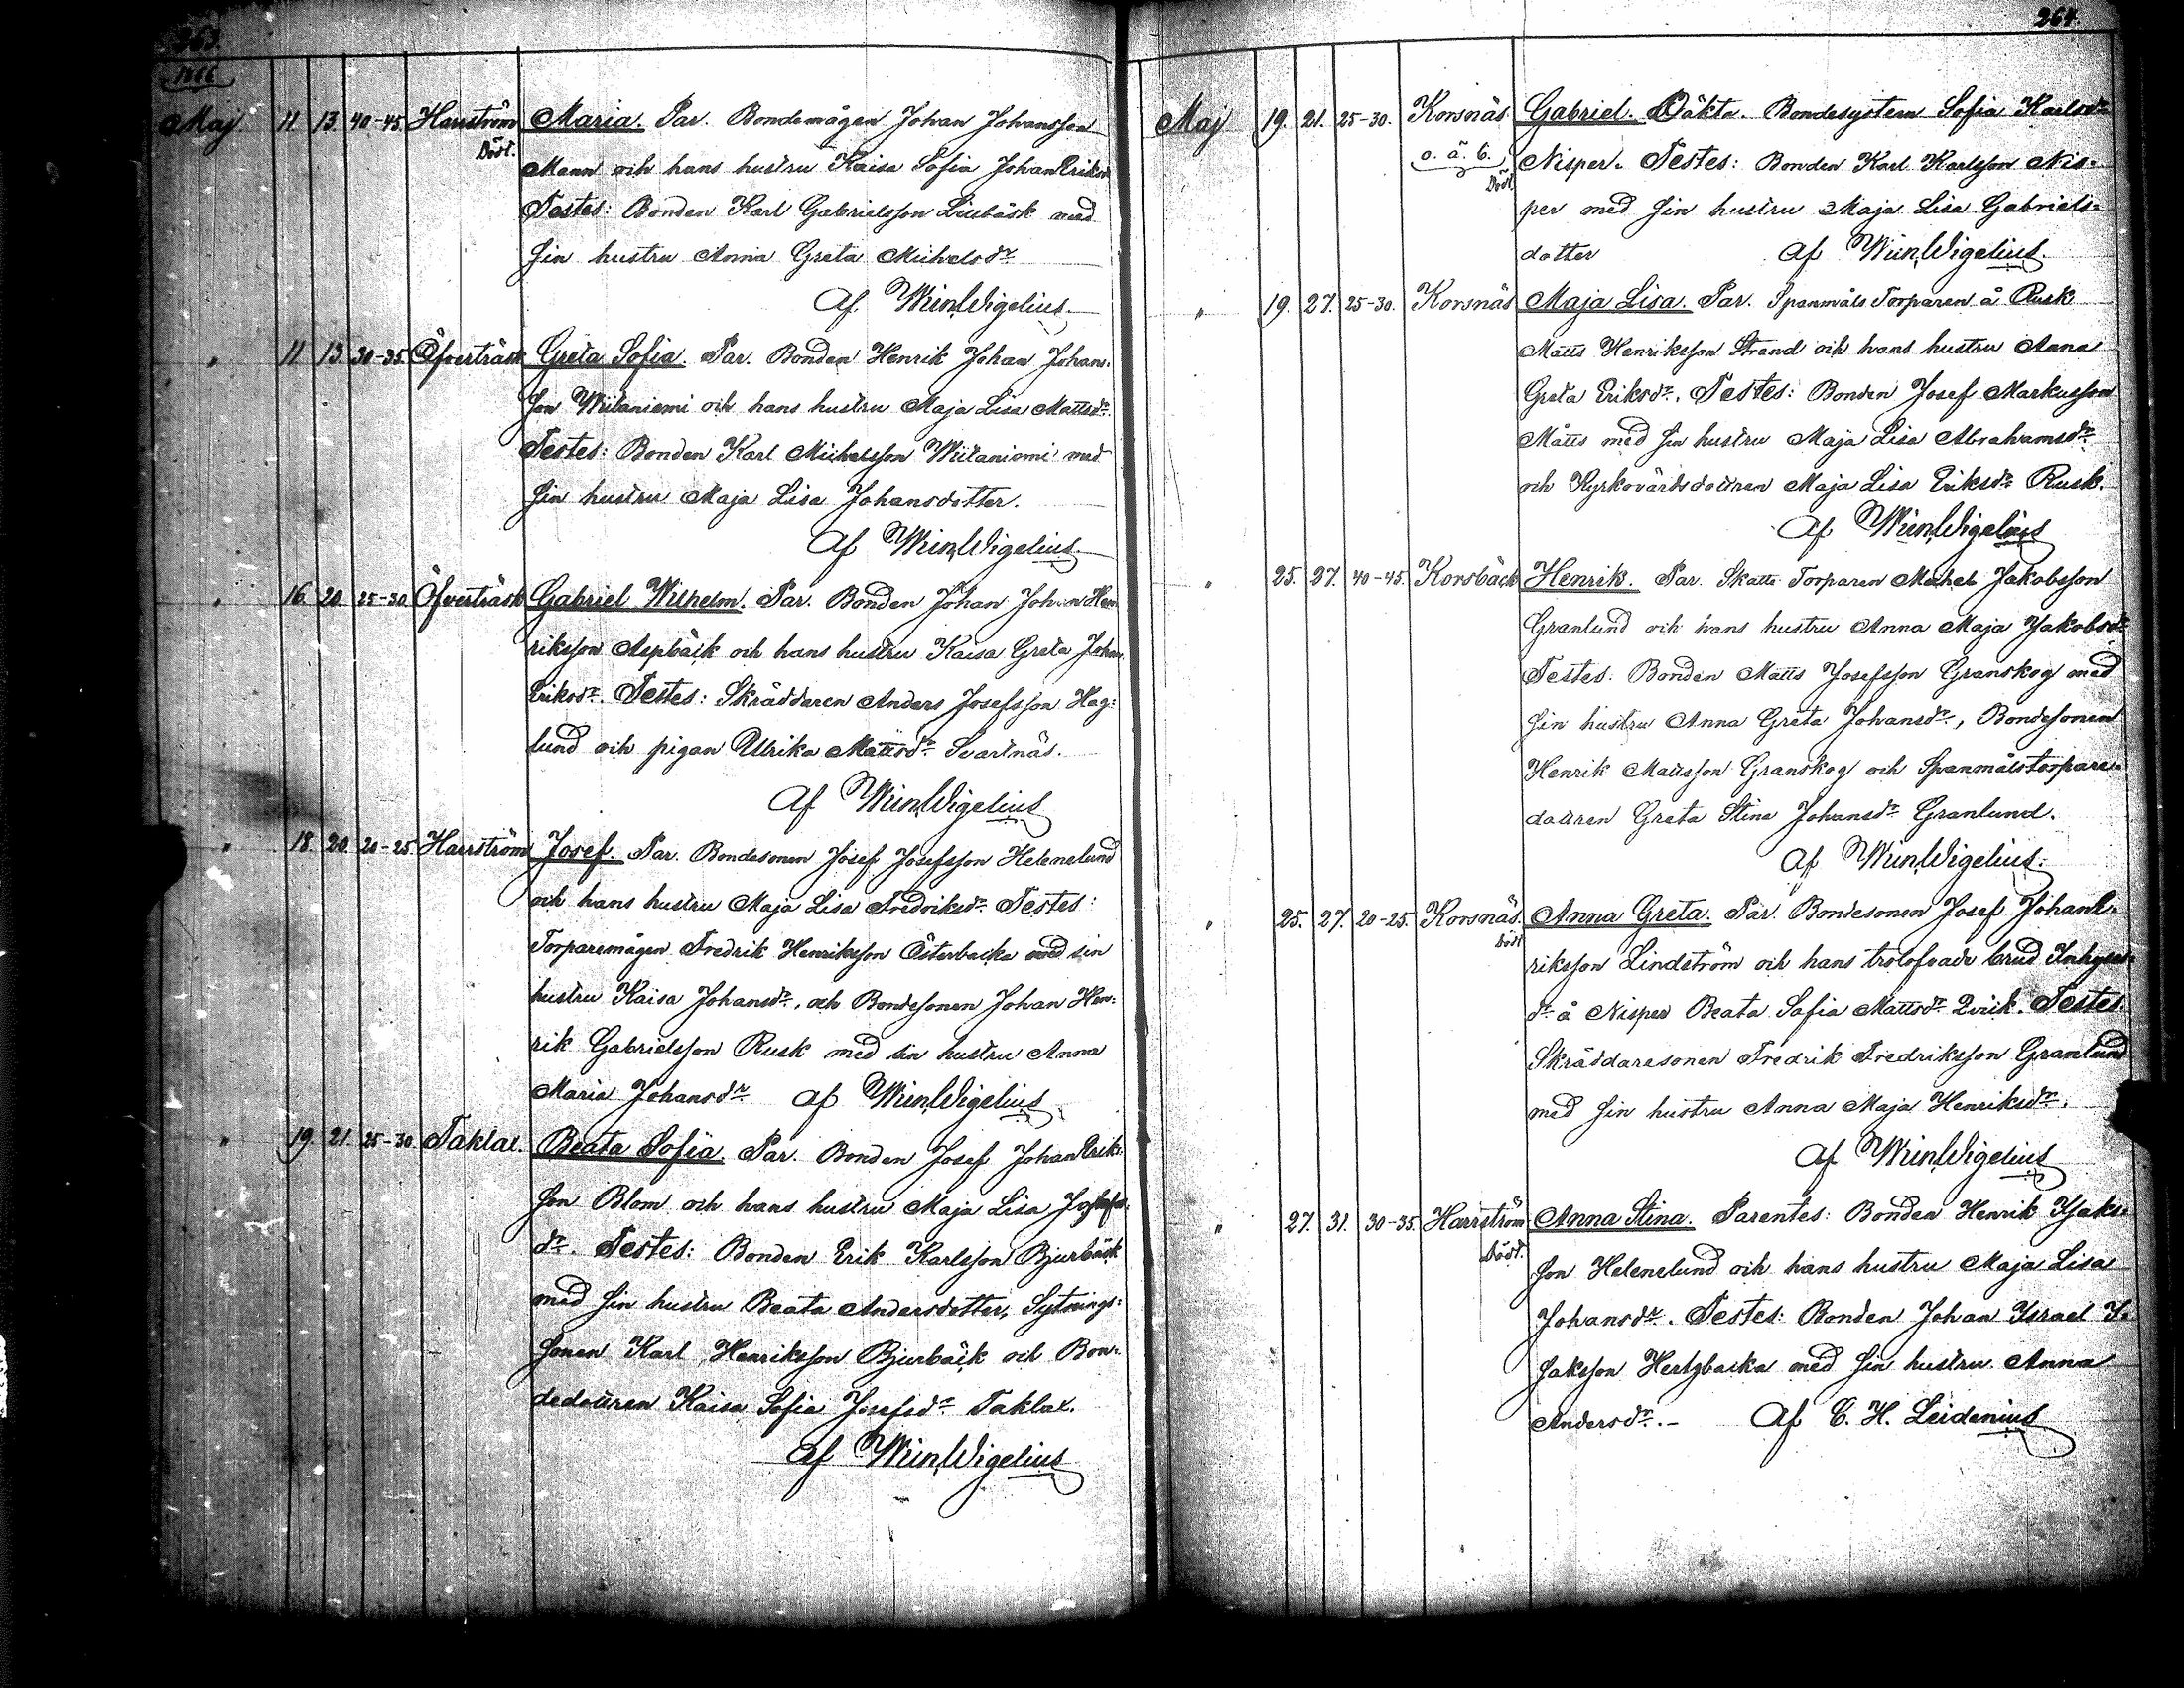 263.
1866
Maj 11. 13. 40-45. Harrström Maria. Par. Bondemågen Johan Johansson
Död. Mann och hans hustru Kaisa Sofia Johan Eriksdr
Testes: Bonden Karl Gabrielsson Liusbäck med
sin hustru Anna Greta Michelsdr
Af WmWigelius.
" 11 13. 30-35. Öfverträsk Greta Sofia. Par. Bonden Henrik Johan Johans-
son Wiitaniemi och hans hustru Maja Lisa Mattsdr
Testes: Bonden Karl Michelsson Wiitaniemi med
sin hustru Maja Lisa Johansdotter.
Af WmWigelius.
" 16. 20. 25-30 Öfverträsk Gabriel Wilhelm. Par. Bonden Johan Johan Hen
riksson Aspbäck och hans hustru Kaisa Greta Johan
Eriksdr. Testes: Skräddaren Anders Josefsson Hag:
lund och pigan Ulrika Mattsdr Svartnäs.
Af WmWigelius
" 18. 20. 20-25 Harrström Josef. Par. Bondesonen Josef Josefsson Helenelund
och hans hustru Maja Lisa Fredriksdr. Testes:
Torparemågen Fredrik Henriksson Österbacka med sin
hustru Kaisa Johansdr, och Bondesonen Johan Hen:
rik Gabrielsson Rusk med sin hustru Anna
Maria Johansdr Af WmWigelius
" 19. 21. 25-30 Taklax. Beata Sofia. Par. Bonden Josef Johan Eriks:
son Blom och hans hustru Maja Lisa Josefs
dr. Testes: Bonden Erik Karlsson Bjurbäck
med sin hustru Beata Andersdotter, Sytnings:
sonen Karl Henriksson Bjurbäck och Bon:
dedottren Kaisa Sofia Josefsdr Taklax.
Af WmWigelius
264.
Maj 19. 21. 25-30. Korsnäs Gabriel. Oäkta. Bondesystern Sofia Karlsdr
o. ä. b. Död Nisper. Testes: Bonden Karl Karlsson Nis-
per med sin hustru Maja Lisa Gabriels-
dotter Af WmWigelius.
" 19. 27. 25-30. Korsnäs Maja Lisa. Par. Spanmåls Torparen å Rusk
Matts Henriksson Strand och hans hustru Anna
Greta Eriksdr. Testes: Bonden Josef Markusson
Måtts med sin hustru Maja Lisa Abrahamsdr
och Kyrkovärdsdottren Maja Lisa Eriksdr Rusk.
Af WmWigelius
" 25. 27. 40-45. Korsbäck Henrik. Par. Skatte Torparen Michel Jakobsson
Granlund och hans hustru Anna Maja Jakobsdr
Testes. Bonden Matts Josefsson Granskog med
sin hustru Anna Greta Johansdr, Bondesonen
Henrik Mattsson Granskog och Spanmålstorpare-
dottren Greta Stina Johansdr Granlund.
Af WmWigelius.
" 25. 27. 20-25. Korsnäs Anna Greta. Par. Bondesonen Josef Johan E-
Död riksson Lindström och hans trolofvade brud Inhyses-
dr å Nisper Beata Sofia Mattsdr Qvick. Testes.
Skräddaresonen Fredrik Fredriksson Granlund
med sin hustru Anna Maja Henriksdr.
Af WmWigelius
" 27. 31. 30-35. Harrström Anna Stina. Parentes: Bonden Henrik Isaks-
Död. son Helenelund och hans hustru Maja Lisa
Johansdr. Testes: Bonden Johan Israel I-
saksson Hertzbacka med sin hustru Anna
Andersdr.- Af C. H. Leidenius